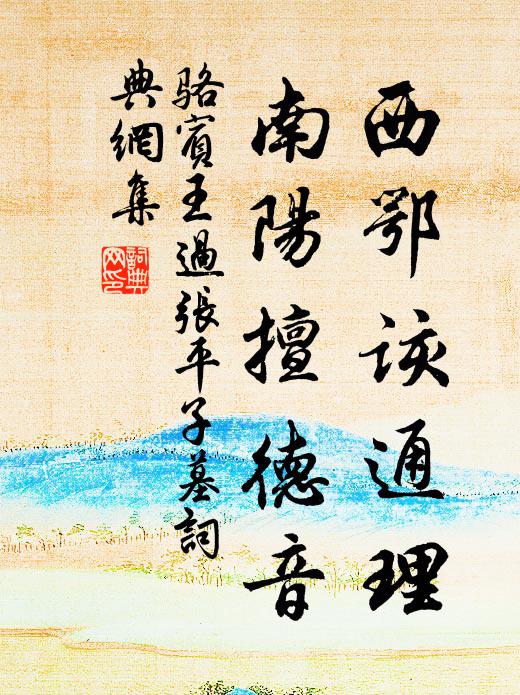 西鄂該通理
南陽擅德音
駱賓王過張平子墓詞
典網集
詞典
网印